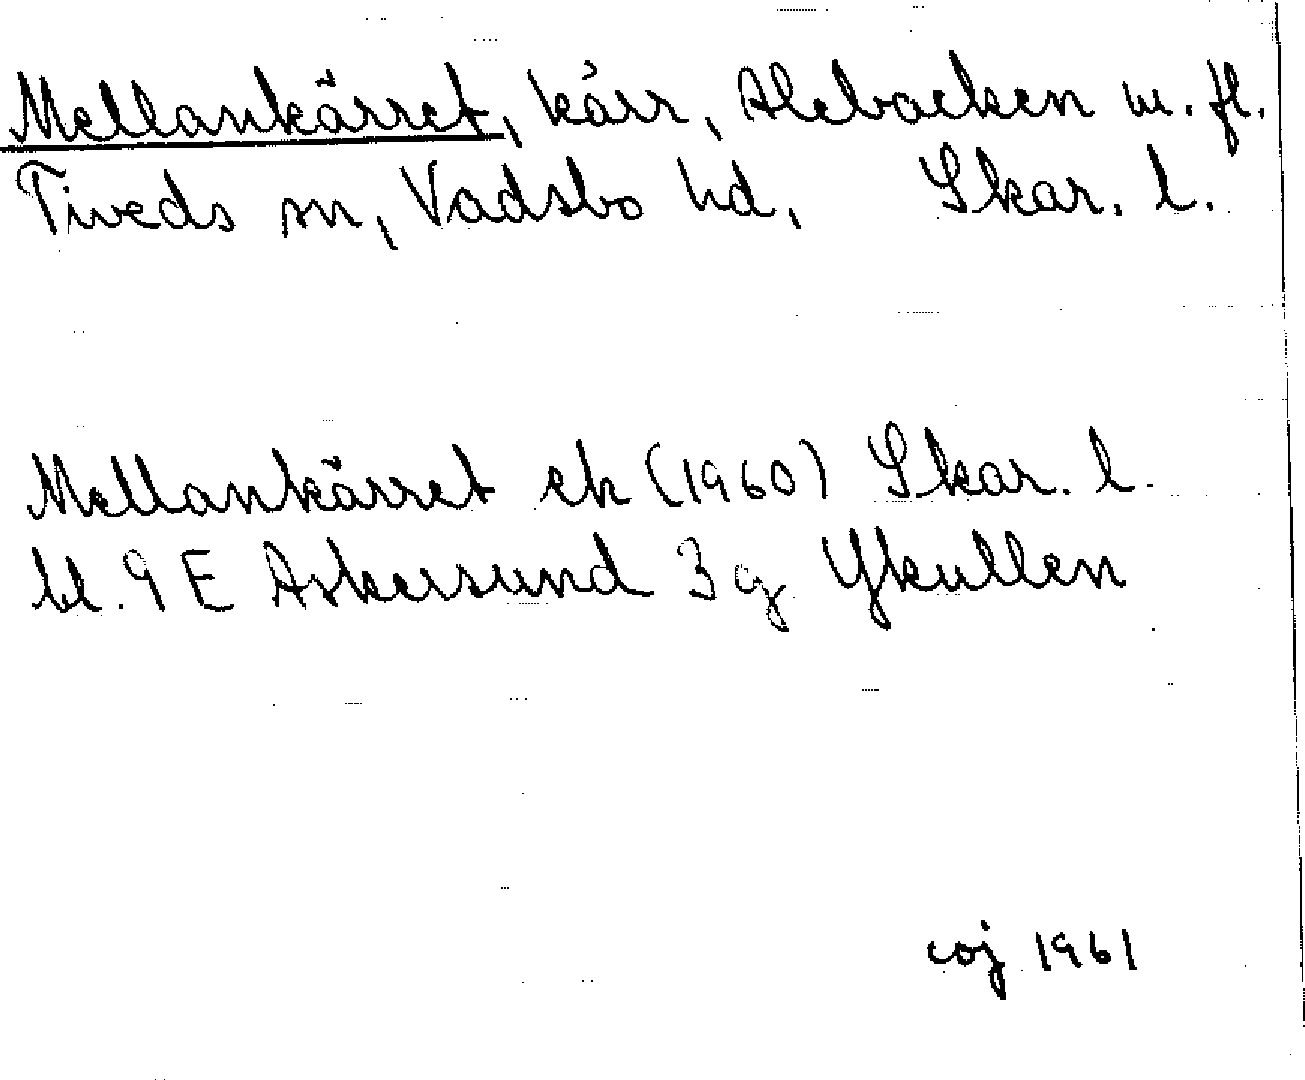 Mellankärret, kärr, Alebacken m. fl.
Tiveds sn, Vadsbo hd, Skar. l.
Mellankärret ek (1960) Skar. l.
bl. 9 E Askersund 3 g Ykullen
coj 1961